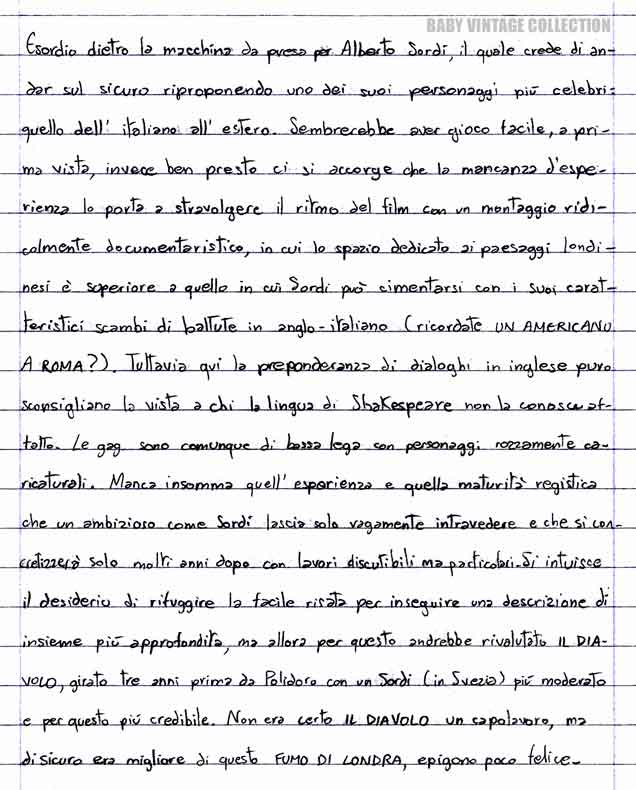 BABY VINTAGE COLLECTION
Esordio dietro la macchina da presa per Alberto Sordi, il quale crede di an-
dar sul sicuro riproponendo uno dei suoi personaggi più celebri:
quello dell' italiano all' estero. Sembrerebbe aver gioco facile, a pri-
ma vista, invece ben presto ci si accorge che la mancanza d'espe-
rienza lo porta a stravolgere il ritmo del film con un montaggio ridi-
colmente documentaristico, in cui lo spazio dedicato ai paesaggi londi-
nesi è superiore a quello in cui Sordi può cimentarsi con i suoi carat-
teristici scambi di battute in anglo-italiano (ricordate UN AMERICANO
A ROMA?). Tuttavia qui la preponderanza di dialoghi in inglese puro
sconsigliano la vista a chi la lingua di Shakespeare non la conosce af-
fatto. Le gag sono comunque di bassa lega con personaggi rozzamente ca-
ricaturali. Manca insomma quell' esperienza e quella maturità registica
che un ambizioso come Sordi lascia solo vagamente intravedere e che si con-
cretizzerà solo molti anni dopo con lavori discutibili ma particolari. Si intuisce
il desiderio di rifuggire la facile risata per inseguire una descrizione di
insieme più approfondita, ma allora per questo andrebbe rivalutato IL DIA-
VOLO, girato tre anni prima da Polidoro con un Sordi (in Svezia) più moderato
e per questo più credibile. Non era certo IL DIAVOLO un capolavoro, ma
di sicuro era migliore di questo FUMO DI LONDRA, epigono poco felice.